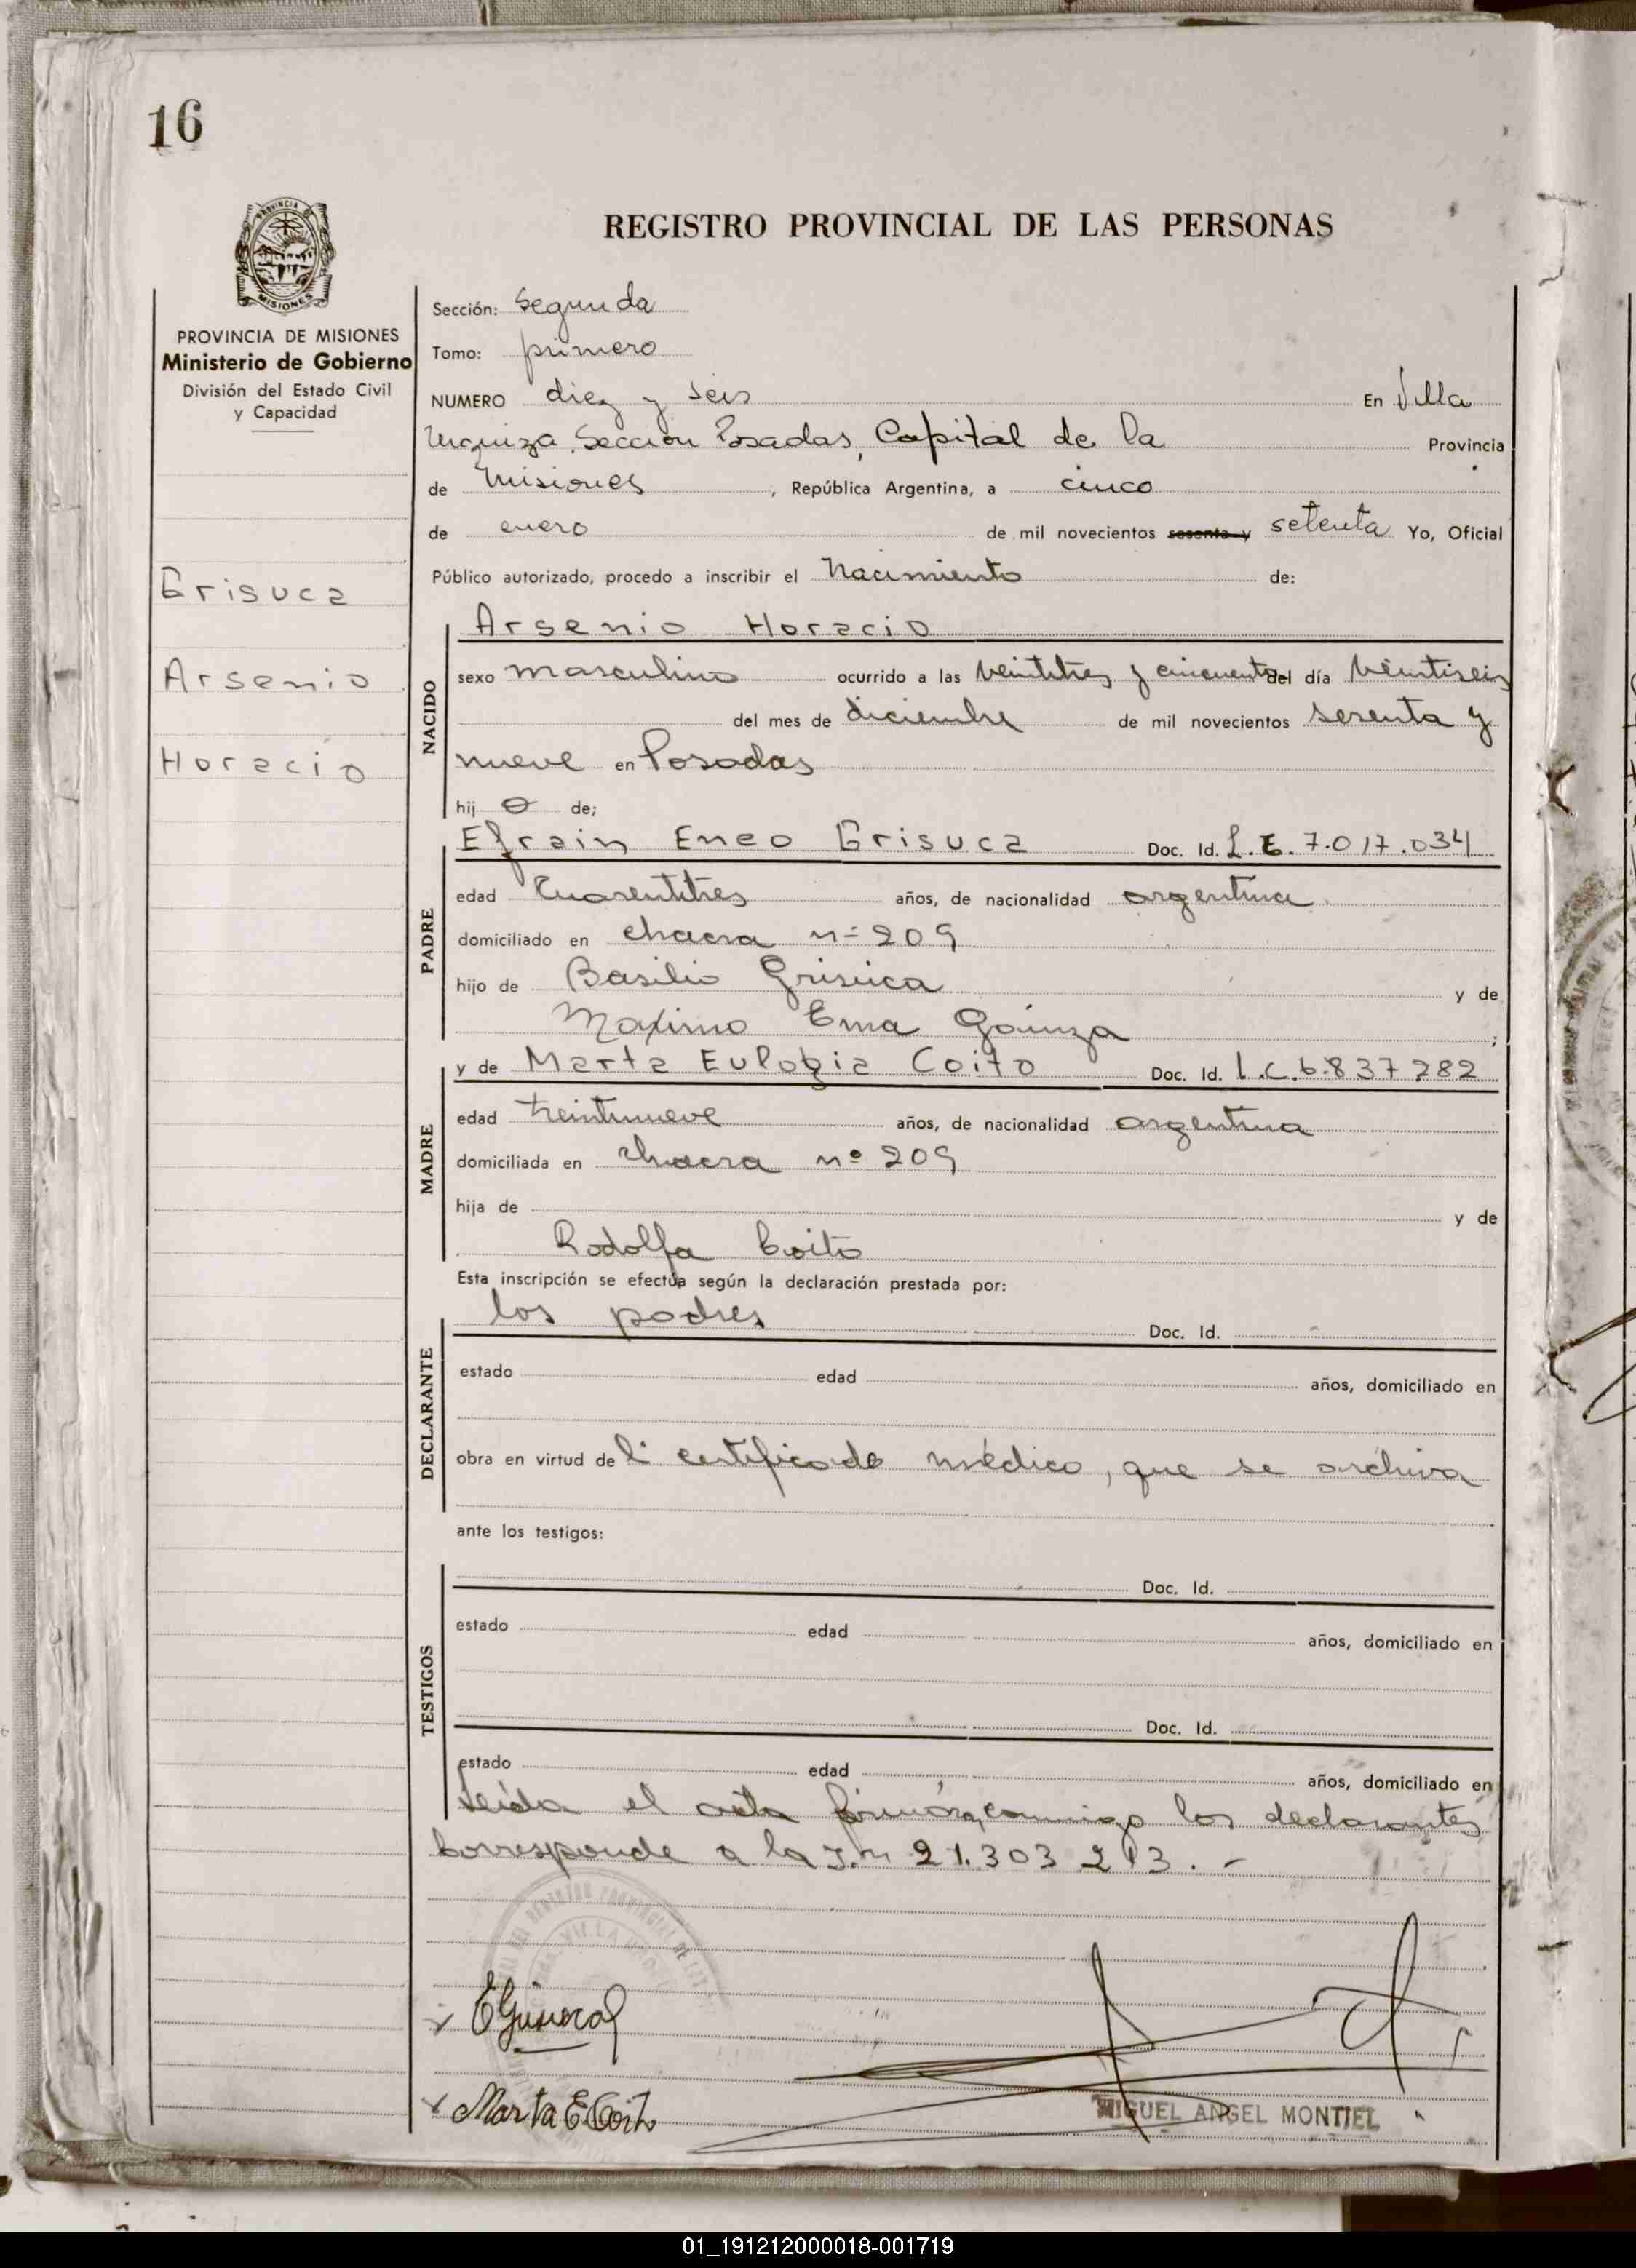 16
PROVINCIA DE
MISIONES
REGISTRO PROVINCIAL DE LAS PERSONAS
PROVINCIA DE MISIONES
Ministerio de Gobierno
División del Estado Civil
y Capacidad
Grisuca
Arsenio
Horacio
Sección: Segunda
Tomo: primero
NUMERO diez y seis En Villa
Urquiza, Sección Posadas, Capital de la Provincia
de Misiones, República Argentina, a cinco
de enero de mil novecientos sesenta y setenta Yo, Oficial
Público autorizado, procedo a inscribir el Nacimiento de:
NACIDO
Arsenio Horacio
sexo masculino ocurrido a las veintitres y cincuenta del día veintiseis
del mes de diciembre de mil novecientos sesenta y
nueve en Posadas
hij o de;
PADRE
Efrain Eneo Grisuca Doc. Id. L.E. 7.017.034
edad cuarentitres años, de nacionalidad argentina
domiciliado en chacra nº 209
hijo de Basilio Grisuca y de
Maximo Ema Gainza;
MADRE
y de Marta Eulogia Coito Doc. Id. L.C. 6.837282
edad treintinueve años, de nacionalidad argentina
domiciliada en chacra nº 209
hija de y de
Rodolfa Coito
Esta inscripción se efectúa según la declaración prestada por:
DECLARANTE
los padres Doc. Id.
estado edad años, domiciliado en
obra en virtud del certificado médico, que se archiva
ante los testigos:
TESTIGOS
Doc. Id.
estado edad años, domiciliado en
Doc. Id.
estado edad años, domiciliado en
Leída el acta firman conmigo los declarantes
Corresponde a la 21.303 213. -
EGrisuca
Marta E Coito
MIGUEL ANGEL MONTIEL
01_191212000018-001719